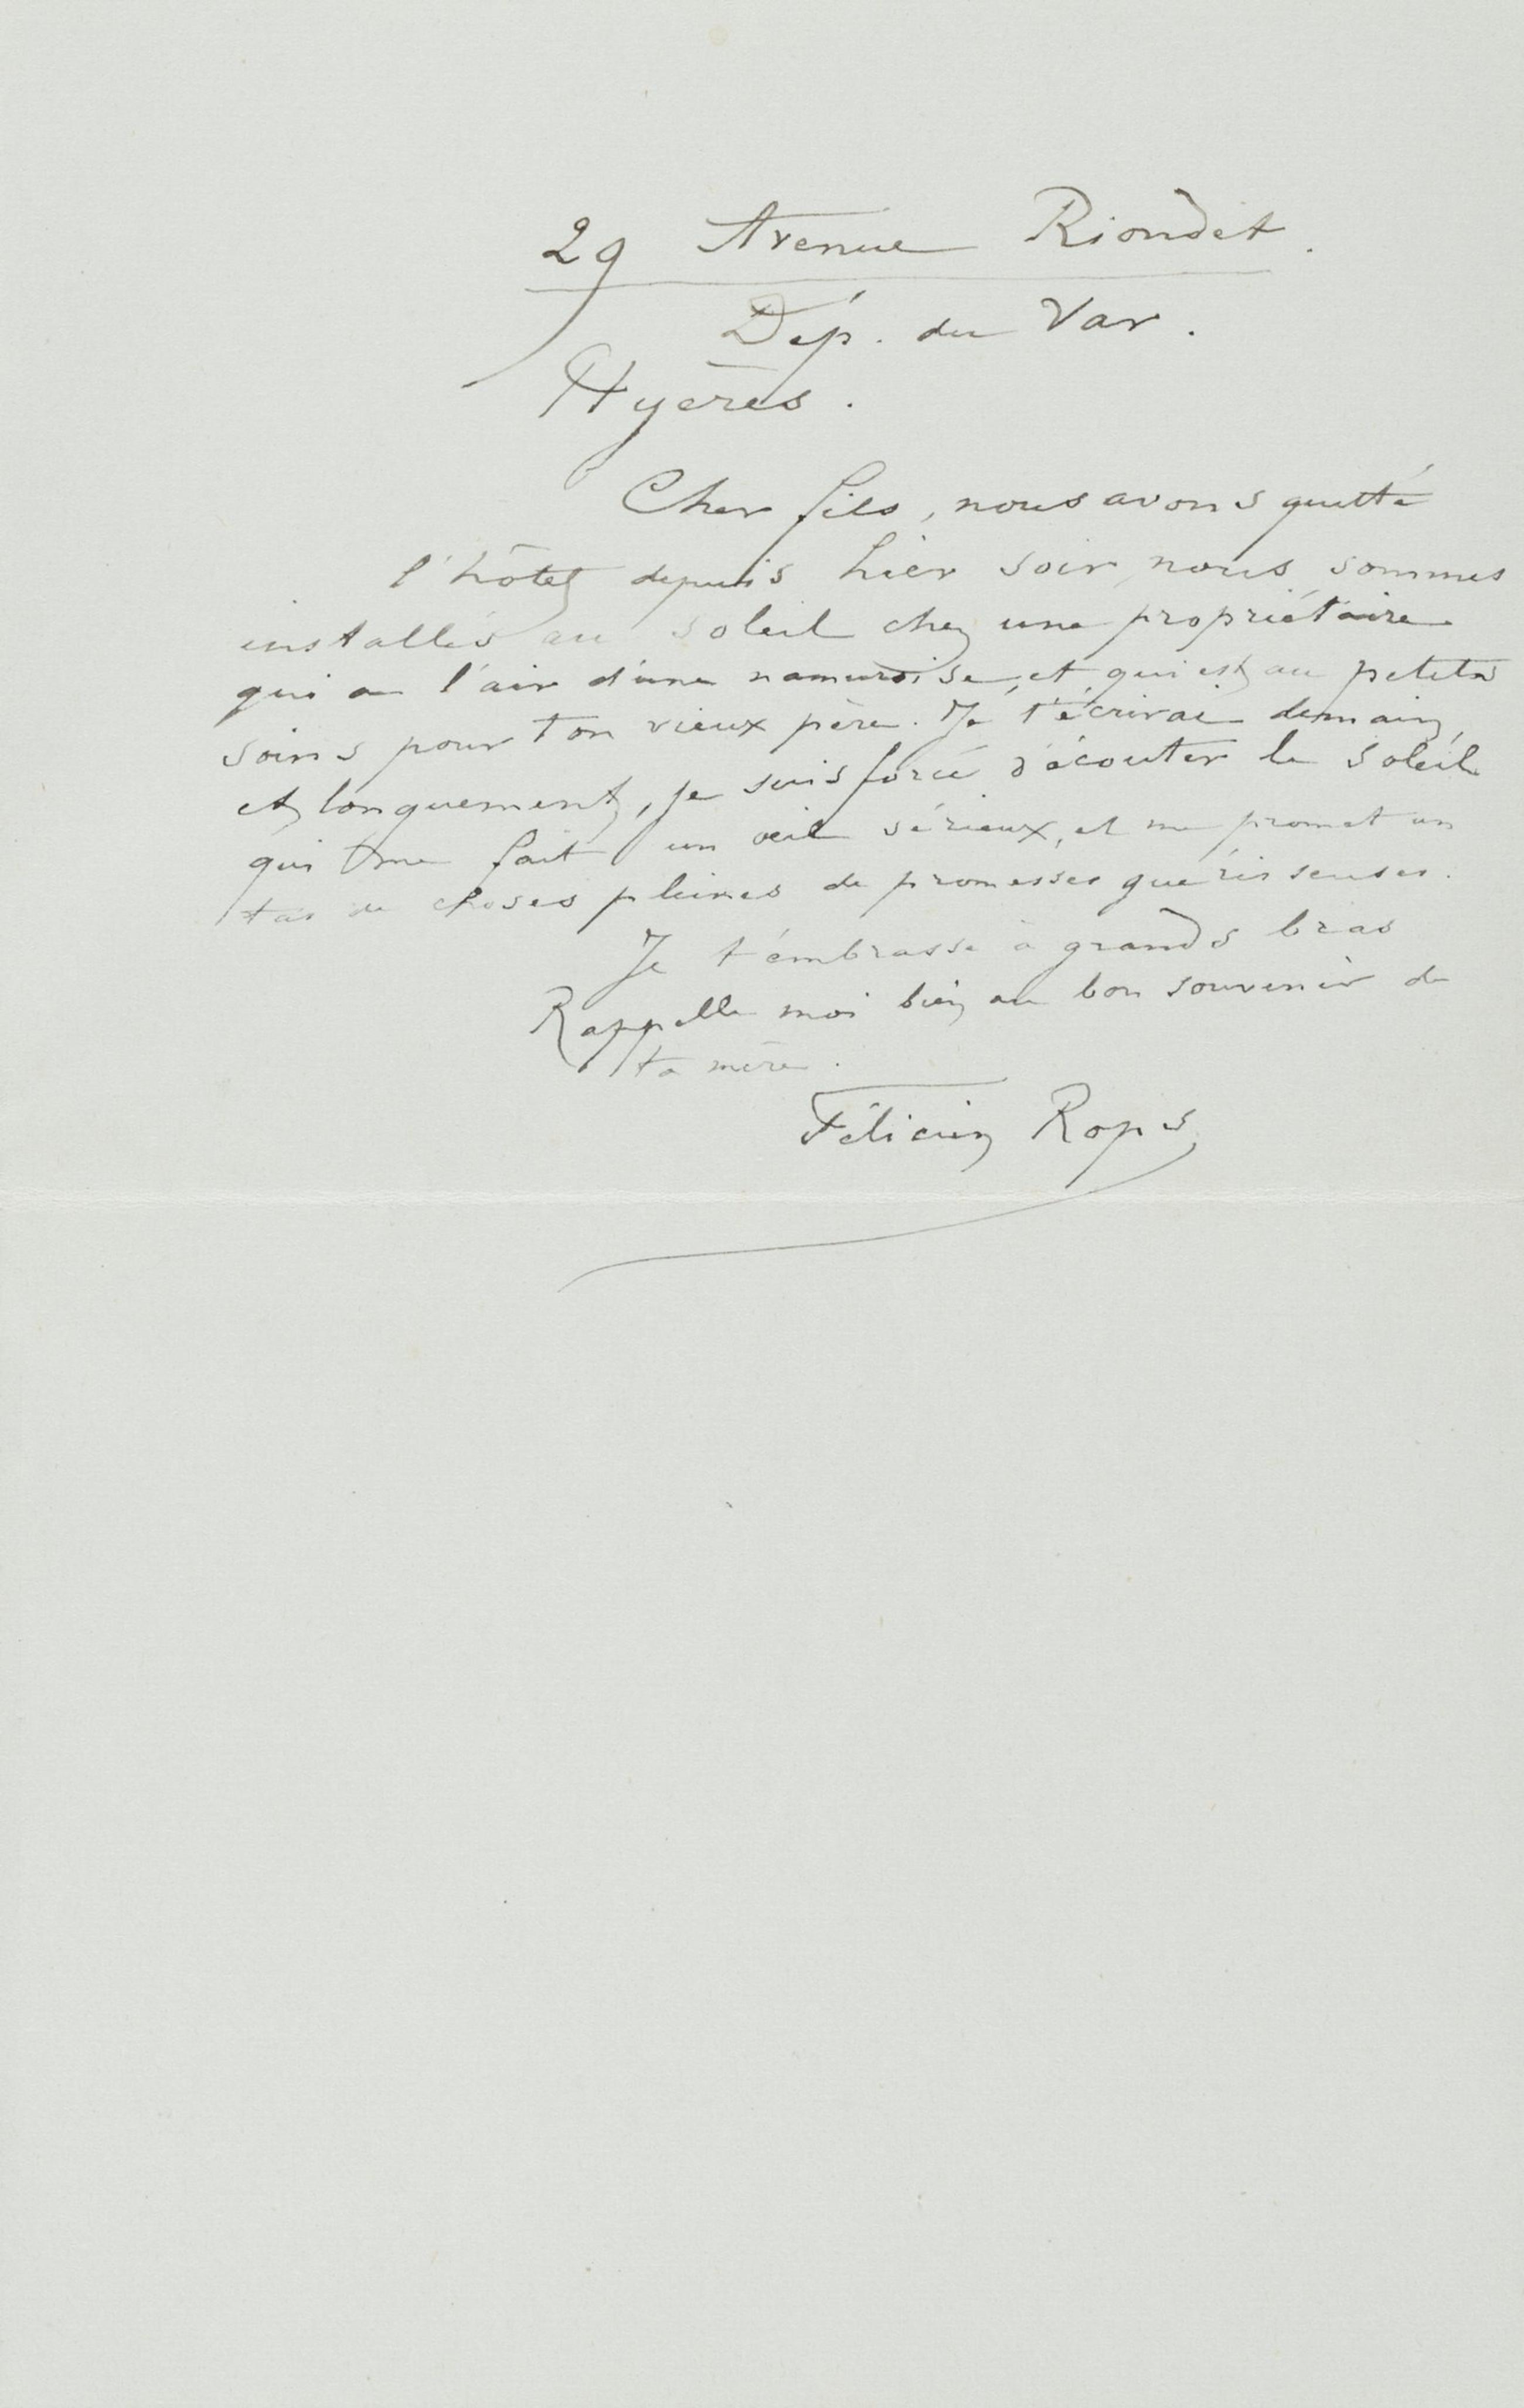 29 Avenue Riondet.
Dép. du Var.
Hyères.
Cher fils, nous avons quitté
l'hôtel depuis hier soir, nous sommes
installés au soleil chez une propriétaire
qui a l'air d'une namuroise, et qui est au petits
soins pour ton vieux père. Je t'écrirai demain,
et longuement, je suis forcé d'écouter le soleil
qui me fait un œil sérieux, et me promet un
tas de choses pleines de promesses guérisseuses.
Je t'embrasse à grands bras
Rappelle moi bien au bon souvenir de
ta mère.
Félicien Rops